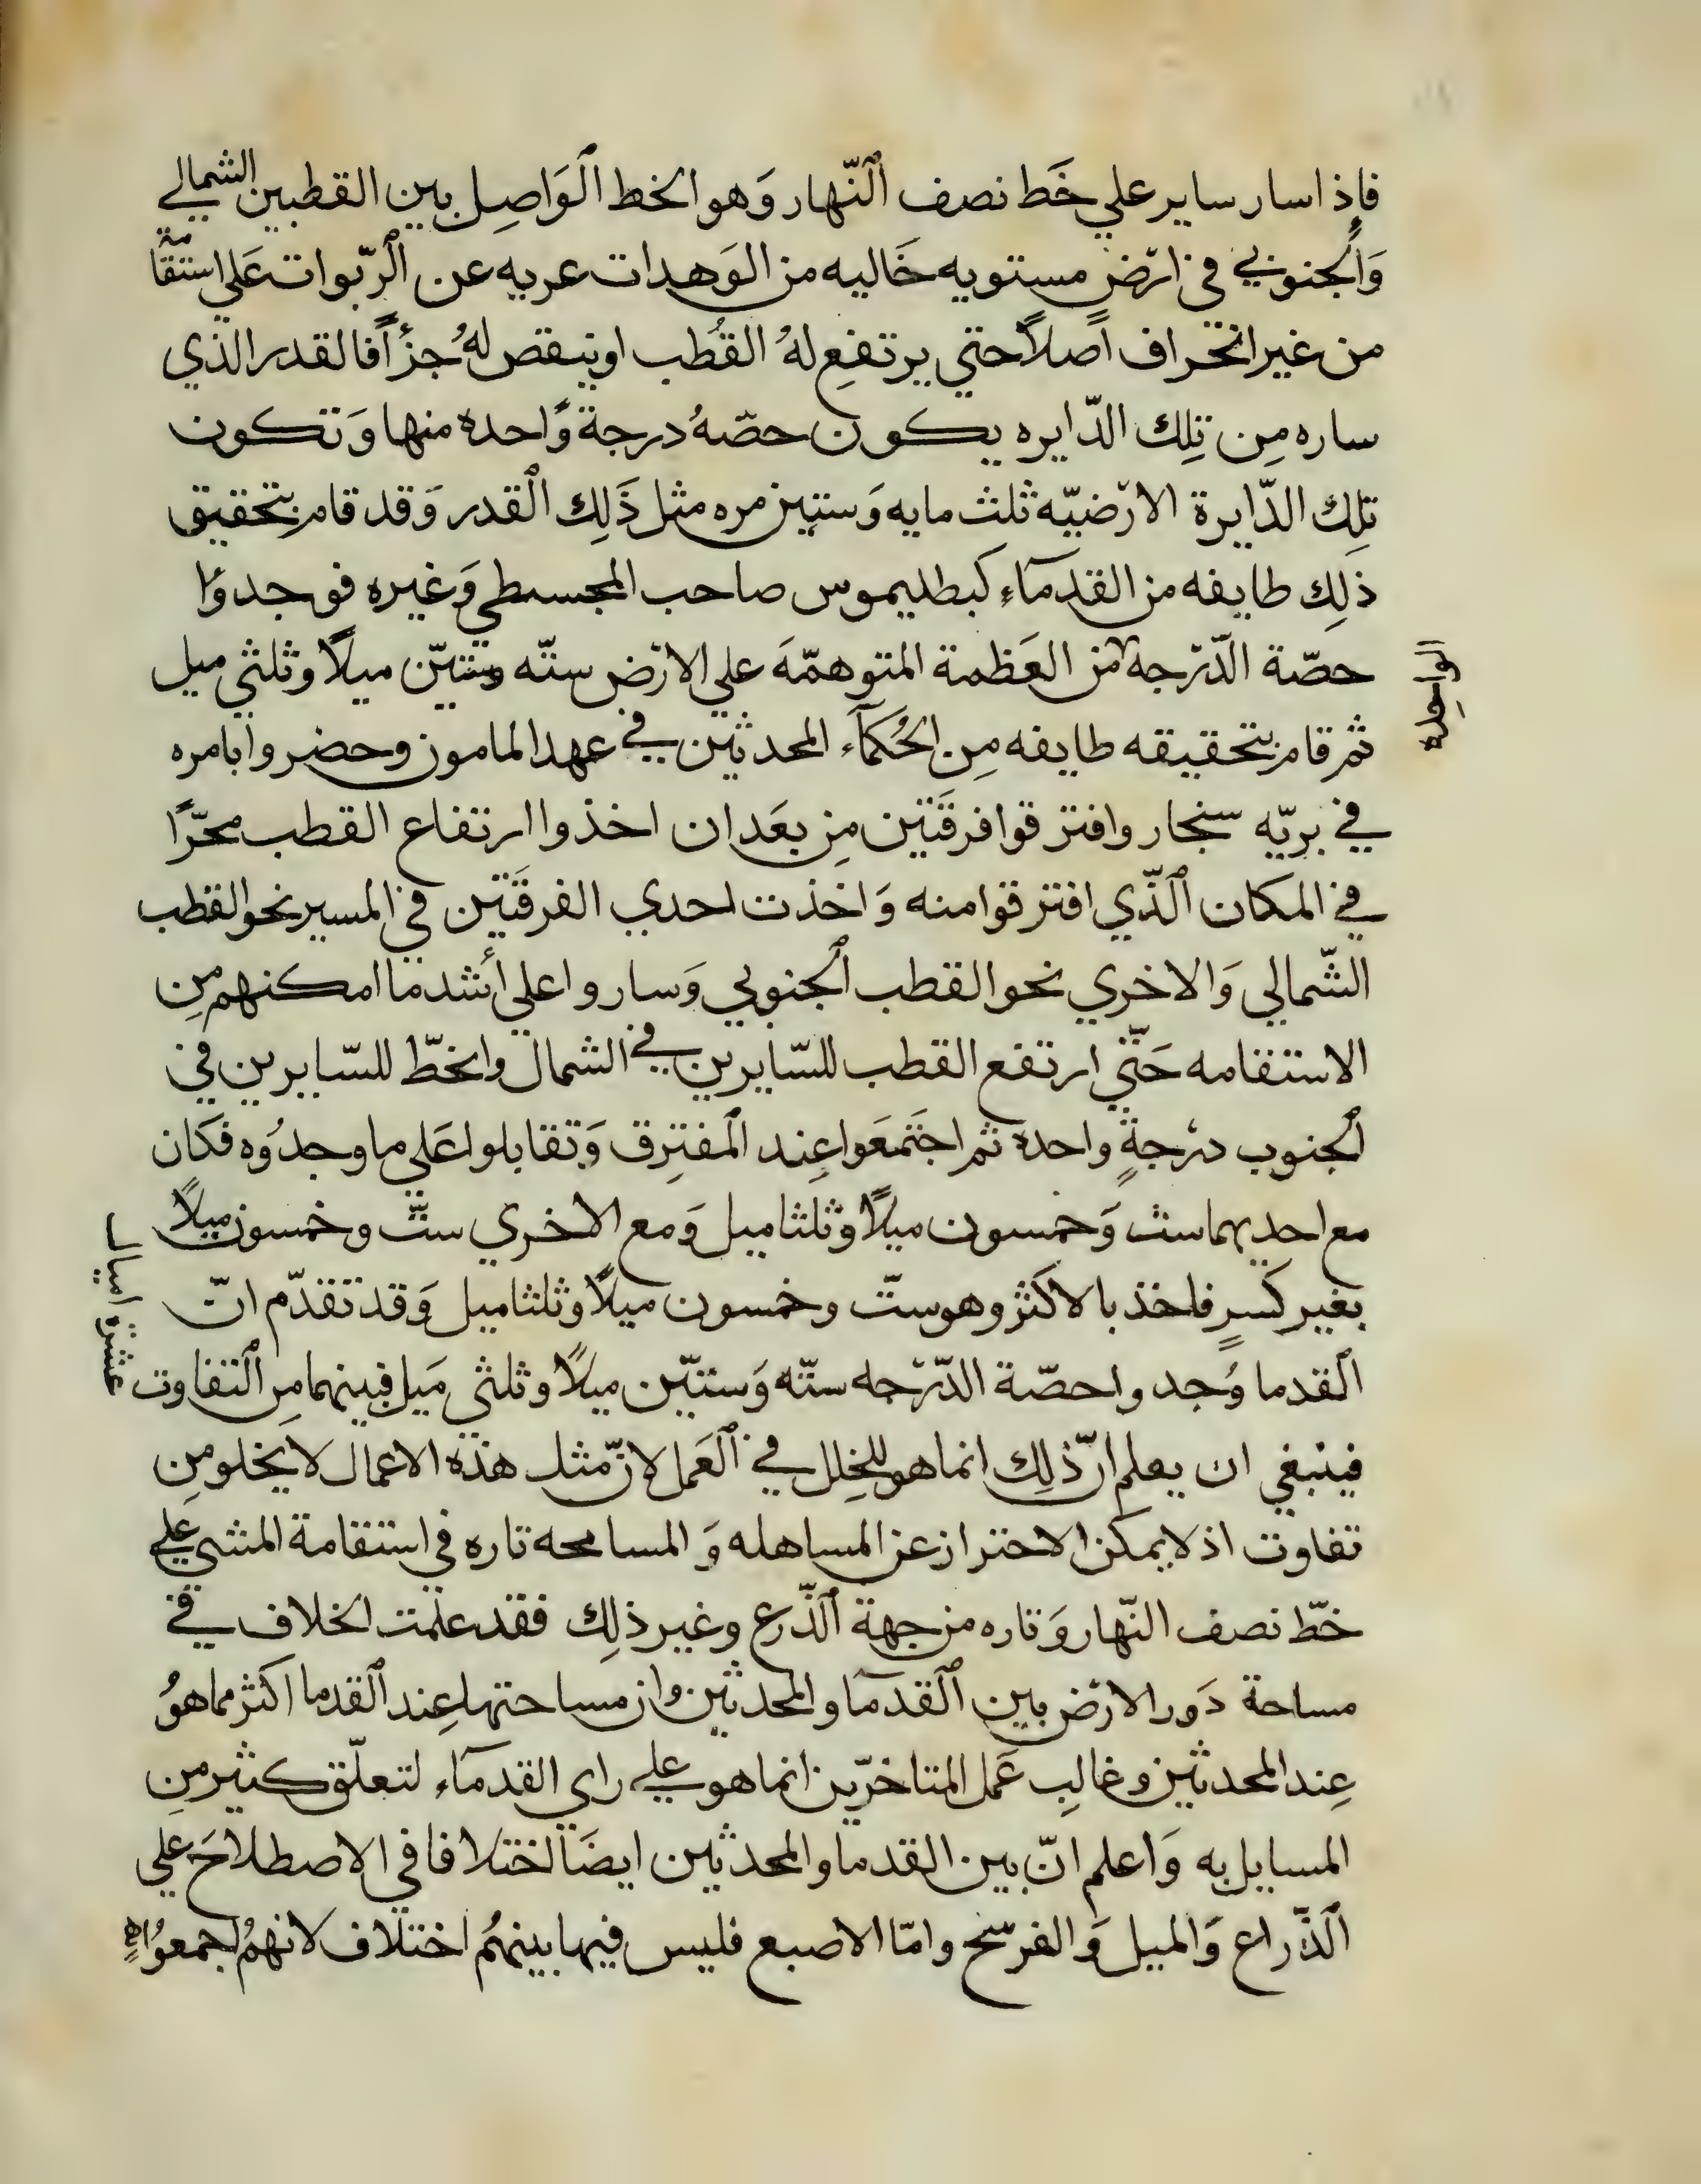 فاذا سار ساير علي خَط نصف ٱلنّهار وَهو الخط ٱلوَاصِل بين القطبين الشمالي
وَٱلجنوبي في ارْض مستويه خَاليه من الوَهدات عريه عن ٱلرّبوات عَلي استقامة
من غير انحراف اصلاً حتي يرتفع لهُ القُطب او ينقص لهُ جزأً فالقدر الذي
ساره مِن تِلك الدّايره يكون حصّهُ درجة وَّاحدة منها وَتكون
تِلك الدّايرة الارْضيّه ثلث مايه وَستين مره مثل ذَلِك ٱلقدر وَقد قام بتحقيق
ذلِك طايفه من القدمآءِ كبطليموس صاحب المجسطي وَغيره فوجدوُا
حصّة الدّرجة من العَظمة المتوهمّهَ علي الارْض ستّه وستّين ميلاً وثلثي ميل
الواحِده
ثم قام بتحقيقه طايفه مِن الحُكمآء المحدثين في عهد المامون وحضروا بامره
في بريّه سنجار وافترقوا فرقَتين مِن بعَد ان اخذوا ارتفاع القطب محرّراً
في المكان ٱلّذي افترقوا منه وَاخذت احدي الفرقَتين في المسير نحو القطب
الشّمالي وَالاخري نحو القطب ٱلجنوبي وَساروا علي أشد ما امكنهم مِن
الاستقامه حَتّي ارتفع القطب للسّايرين في الشمال وانحطّ للسّايرين في
ٱلجنوب درْجةٍ واحدة ثم اجتَمعَوا عِند ٱلمفترِق وَتقابلوا عَلي ما وجدُوه فكان
مع احديهما ست وَخمسون ميلاً وثلثا ميل وَمع الاخري ستّ وخمسون ميلاً
بغير كَسرٍ فاخذ بالاكثر وهو ستّ وخمسون ميلاً وثلثا ميل وَقد تقدّم انّ
ٱلقدما وُجدوا حصّة الدّرْجه ستّه وَستّين ميلاً وثلثي مَيل فبينهما مِن ٱلتفاوت
عشرة اميال
فينبغي ان يعلم انّ ذلِك انما هو للخِلل في ٱلعَمل لانّ مثل هذه الاعمال لا يخلو مِن
تفاوت اذ لا يمكن الاحتراز عن المساهله وَ المسامحه تاره في استقامة المشي علي
خطّ نصف النّهار وَتاره من جهة ٱلذّرع وغير ذلِك فقد علمت الخلاف في
مساحة دَور الارْض بين ٱلقدمآ والمحدثين وان مساحتها عِند ٱلقدما اكثر مما هوُ
عِند المحدثين وغالِب عَمل المتاخرّين انما هو علي راي القدمآء لتعلّق كثير مِن
المسايل به وَاعلم انّ بين القدما والمحدثين ايضَا اختلافا في الاصطلاحَ علي
ٱلذّراع وَالميل وَ الفرسْخ وامّا الاصبع فليس فيها بينهُم اختلاف لانهمُ اجمعوُا